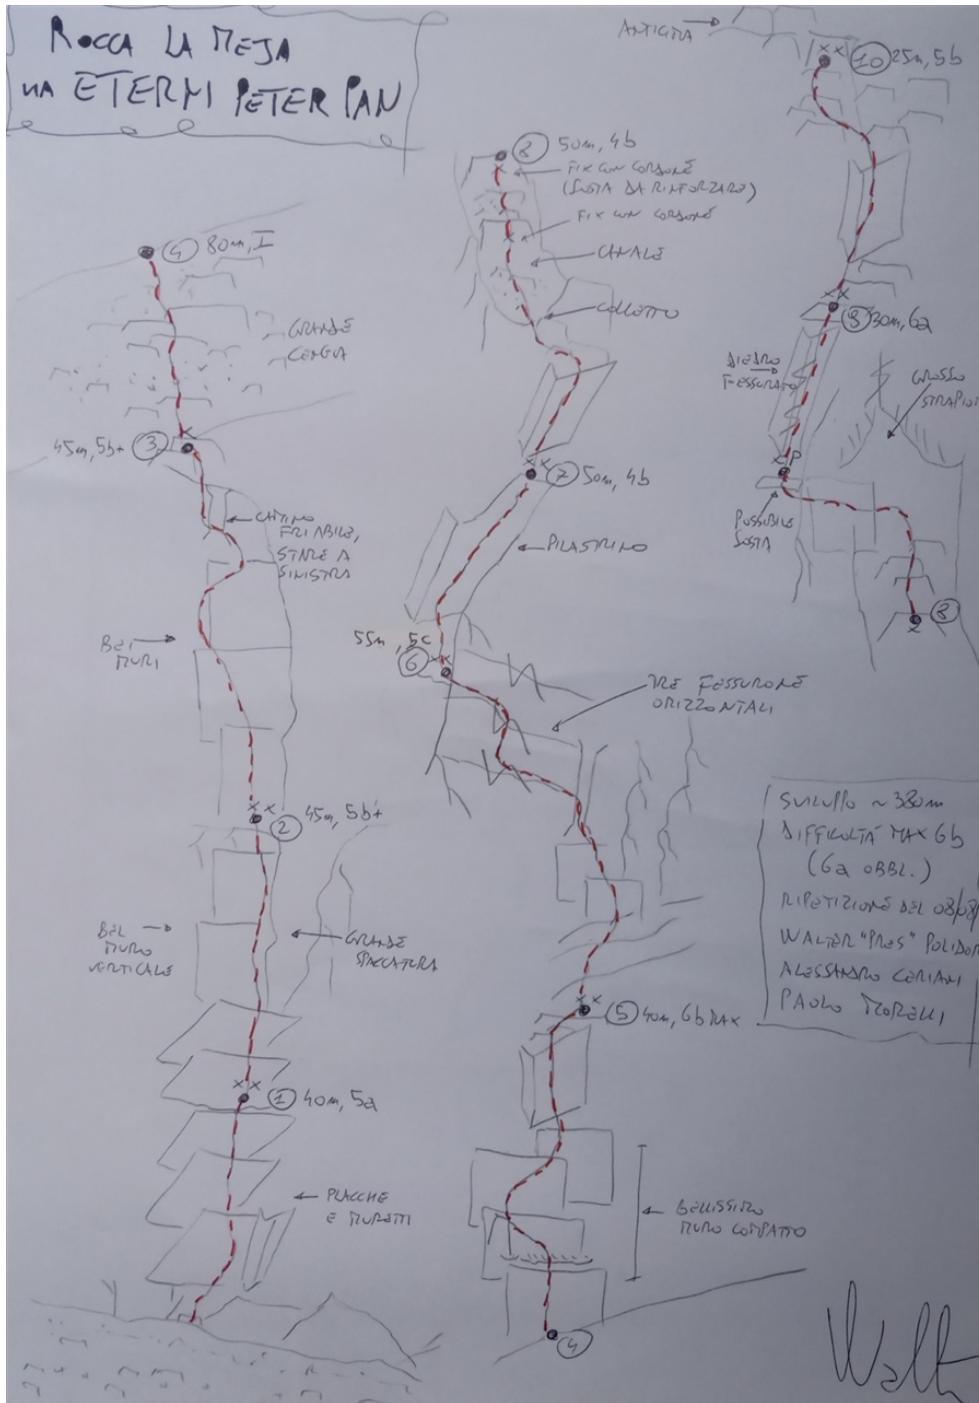 ROCCA LA MEJA
VIA ETERNI PETER PAN
4 80m, I
GRANDE
CENGIA
45m, 5b+ 3
CAMINO
FRIABILE,
STARE A
SINISTRA
BEI
MURI
2 45m, 5b+
BEL
MURO
VERTICALE
GRANDE
SPACCATURA
1 40m, 5a
PLACCHE
E MURETTI
8 50m, 4b
FIX CON CORDONE
(SOSTA DA RINFORZARE)
FIX CON CORDONE
CANALE
COLLETTO
7 50m, 4b
PILASTRINO
55m, 5c
6
TRE FESSURONE
ORIZZONTALI
5 40m, 6b MAX
BELLISSIMO
MURO COMPATTO
4
ANTICIMA
10 25m, 5b
9 30m, 6a
DIEDRO
FESSURATO
GROSSO
STRAPIO
P
POSSIBILE
SOSTA
8
SVILUPPO ~ 380m
DIFFICOLTÀ MAX 6b
(6a OBBL.)
RIPETIZIONE DEL 08/08/
WALTER "PRES" POLIDOR
ALESSANDRO CERIANI
PAOLO MORELLI
Walt